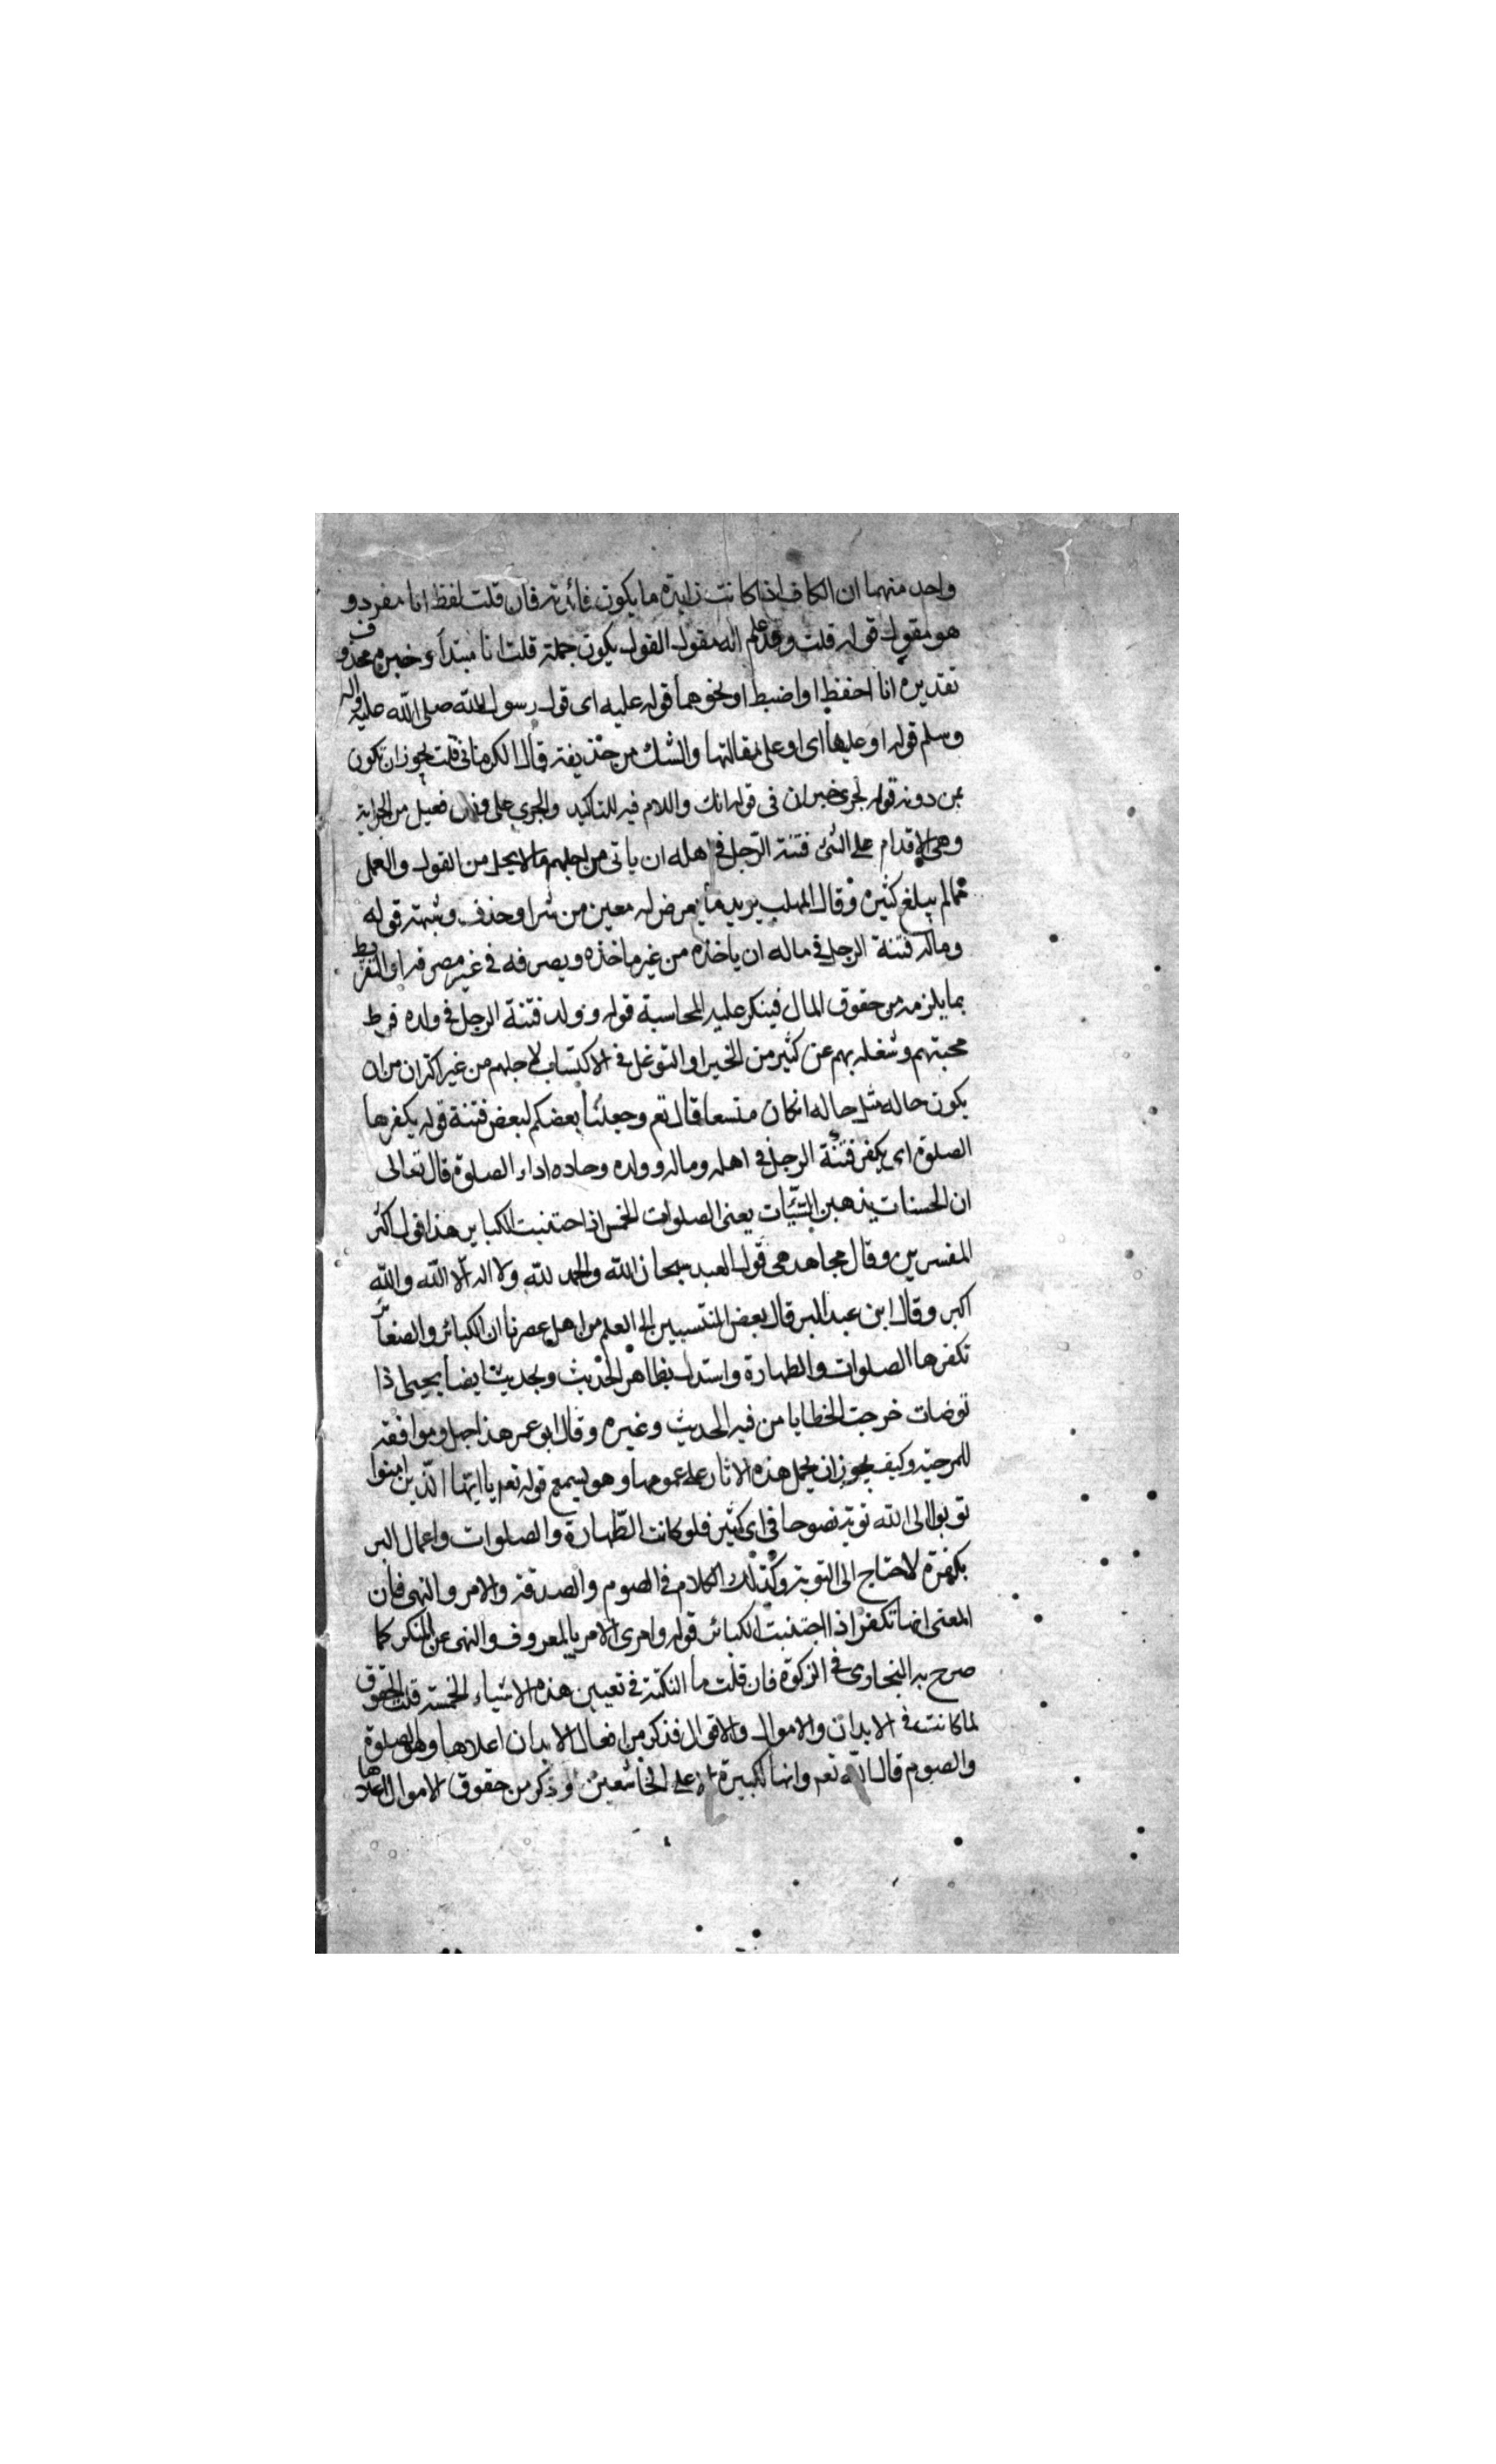 واحد منهما ان الكاف اذا كانت زايدة ما يكون فائدته فان قلت لفظ انا مفرد و
هو مقول قوله قلت وقد علم انه مقول القول يكون جملة قلت انا مبتداء وخبره محذوف
تقديره انا احفظ او اضبط او نحوهما قوله عليه اى قول رسول الله صلى الله عليه واله
وسلم قوله او عليها اى او على مقالتها والشك من حذيفة قال الكرمانى قلت يجوز ان يكون
من دونه قوله لجرى خبر ان فى قوله انك واللام فيه للتاكيد والجرى على وزن فعيل من الجراية
وهى الاقدام على الشئ فتنة الرجل فى اهله ان ياتى من اجلهم ما لا يحل من القول والعمل
مما لم يبلغ كثيرة وقال المهلب يريد ما يعرض له معهن من شر او حذف وشبهه قوله
وماله فتنة الرجل فى ماله ان ياخذه من غير ماخذه ويصرفه فى غير مصرفه او التفريط
بما يلزمه من حقوق المال فينكر عليه المحاسبة قوله وولده فتنة الرجل فى ولده فرط
محبتهم وشغله بهم عن كثير من الخير او التوغل فى الاكتساب لاجلهم من غير اكتران من ان
يكون حاله مثل حاله انكان متسعا قال تعم وجعلنا بعضكم لبعض فتنة قوله يكفرها
الصلوة اى يكفر فتنة الرجل فى اهله وماله وولده وحاده اداء الصلوة قال تعالى
ان الحسنات يذهبن السّيّات يعنى الصلوات الخمس اذا احتنبت الكباير هذا قول اكثر
المفسرين وقال مجاهد هى قول العبد سبحان الله والحمد لله ولا اله الا الله والله
اكبر وقال ابن عبد البر قال بعض المنتسبين الى العلم من اهل عصرنا ان الكبائر والصغائر
تكفرها الصلوات والطهارة واستدل بظاهر الحديث وبحديث ايضا يحيى اذا
توضات خرجت الخطايا من فيه الحديث وغيره وقال ابو عمر هذا جهل وموافقة
للمرجية وكيف يجوز ان يحمل هذه الاثار على عمومها وهو يسمع قوله تعم يا ايها الذين امنوا
توبوا الى الله توبة نصوحا فى اى كثير فلو كانت الطّهارة والصلوات واعمال البر
يكفرة لا احتاج الى التوبة وكذلك الكلام فى الصوم والصدقة والامر والنهى فان
المعنى انها تكفر اذا اجتنبت الكبائر قوله وامرى الامر بالمعروف والنهى عن المنكر كما
صرح به البخارى فى الزكوة فان قلت ما النكتة فى تعيين هذه الاشياء الخمسة قلت الحقوق
لما كانت فى الابدان والاموال والاقوال فذكر من افعال الابدان اعلاها وهو الصلوة
والصوم قال الله تعم وانها لكبيرة الا على الخاشعين وذكر من حقوق الاموال اعلاها